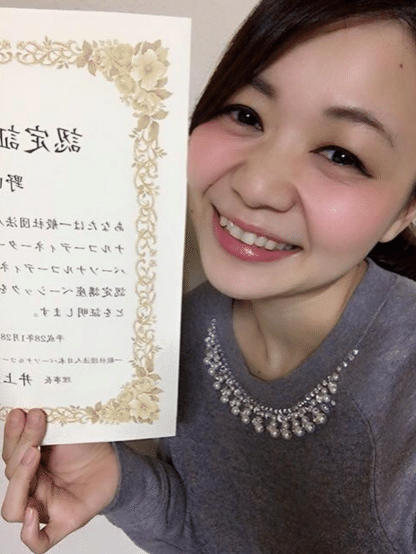 認定証
野
あなたは一般社団法人
ナルコーディネーター
パーソナルコーディネ
認定講座ベーシックを
とを証明します。
平成28年1月28
一般社団法人日本パーソナルコー
理事長 井上